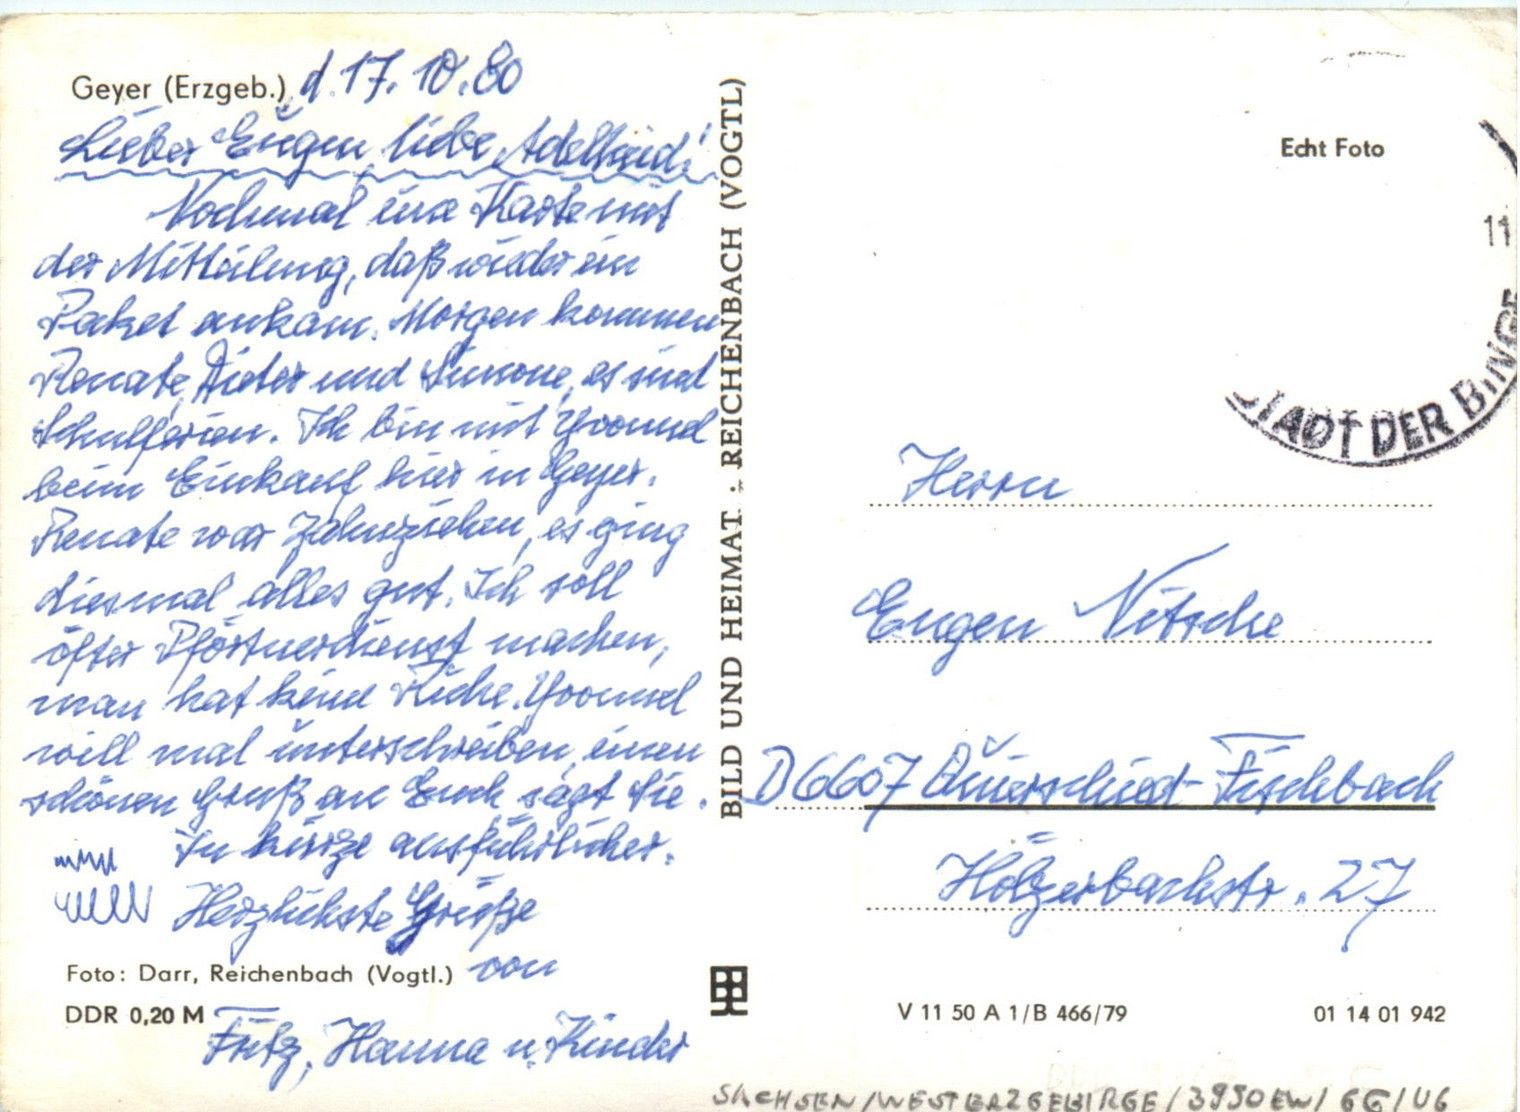 Geyer (Erzgeb.), d. 17. 10. 80
Lieber Eugen, liebe Adelheid!
Nochmal eine Karte mit
der Mitteilung, daß wieder ein
Paket ankam. Morgen kommen
Renate, Dieter und Simone, es sind
Schulferien. Ich bin mit Yvonnel
beim Einkauf hier in Geyer.
Renate war Zahnziehen, es ging
diesmal alles gut. Ich soll
öfter Pförtnerdienst machen,
man hat keine Ruhe. Yvonnel
will mal unterschreiben, einen
schönen Gruß an Euch sagt sie.
In kürze ausführlicher.
Herzlichste Grüße
von
Fritz, Hanna u. Kinder
Foto: Darr, Reichenbach (Vogtl.)
DDR 0,20 M
BILD UND HEIMAT . REICHENBACH (VOGTL)
Echt Foto
11
STADT DER BINGE
Herrn
Eugen Nitsche
D 6607 Quierschied-Fischbach
Holzerbachstr. 27
V 11 50 A 1/B 466/79
01 14 01 942
SACHSEN/WESTERZGEBIRGE/3990EW/GG/U6